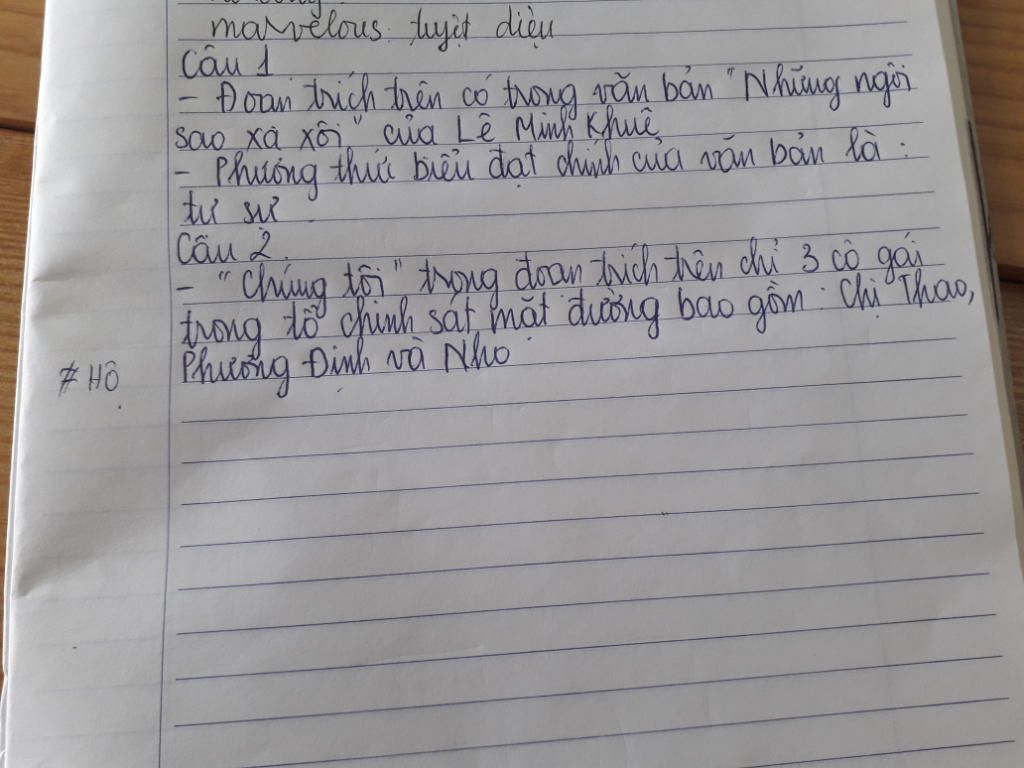 marvelous: tuyệt diệu
Câu 1
- Đoạn trích trên có trong văn bản "Những ngôi
sao xa xôi" của Lê Minh Khuê
- Phương thức biểu đạt chính của văn bản là :
tự sự
Câu 2.
- "Chúng tôi" trong đoạn trích trên chỉ 3 cô gái
trong tổ chinh sát mặt đường bao gồm : Chị Thao,
Phương Định và Nho
≠ Hộ